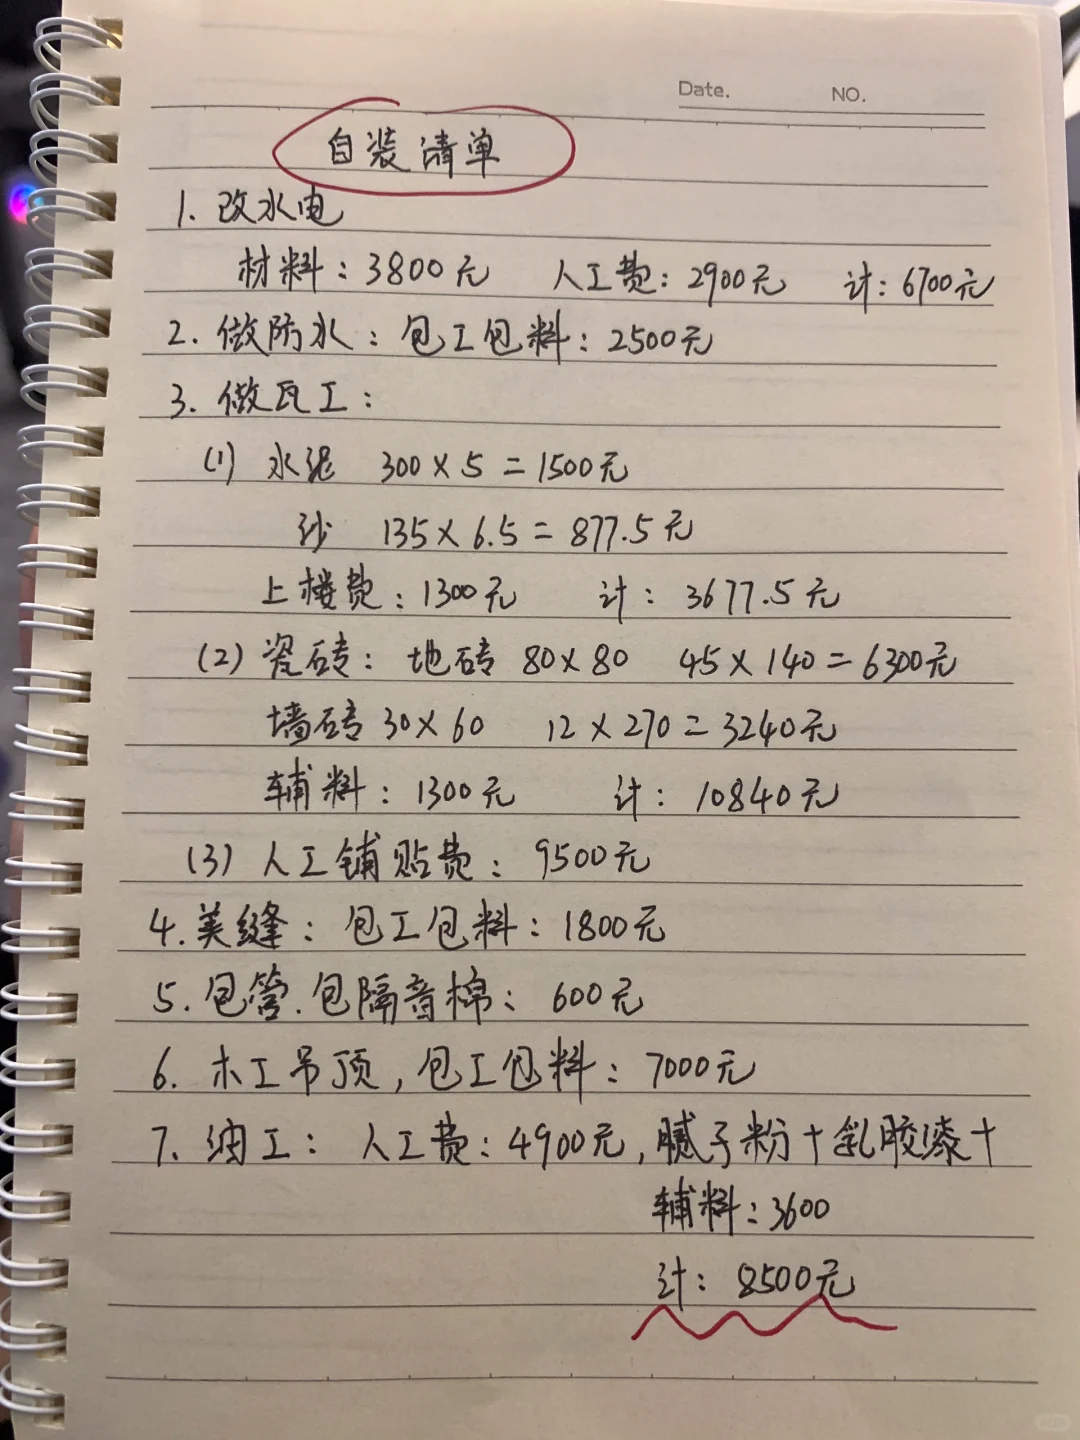 Date.    NO.
自装清单
1. 改水电
材料：3800元  人工费：2900元  计：6700元
2. 做防水：包工包料：2500元
3. 做瓦工：
(1) 水泥  300×5=1500元
沙  135×6.5=877.5元
上楼费：1300元  计：3677.5元
(2) 瓷砖：地砖 80×80  45×140=6300元
墙砖 30×60  12×270=3240元
辅料：1300元  计：10840元
(3) 人工铺贴费：9500元
4. 美缝：包工包料：1800元
5. 包管.包隔音棉：600元
6. 木工吊顶，包工包料：7000元
7. 油工：人工费：4900元，腻子粉+乳胶漆+
辅料：3600
计：8500元